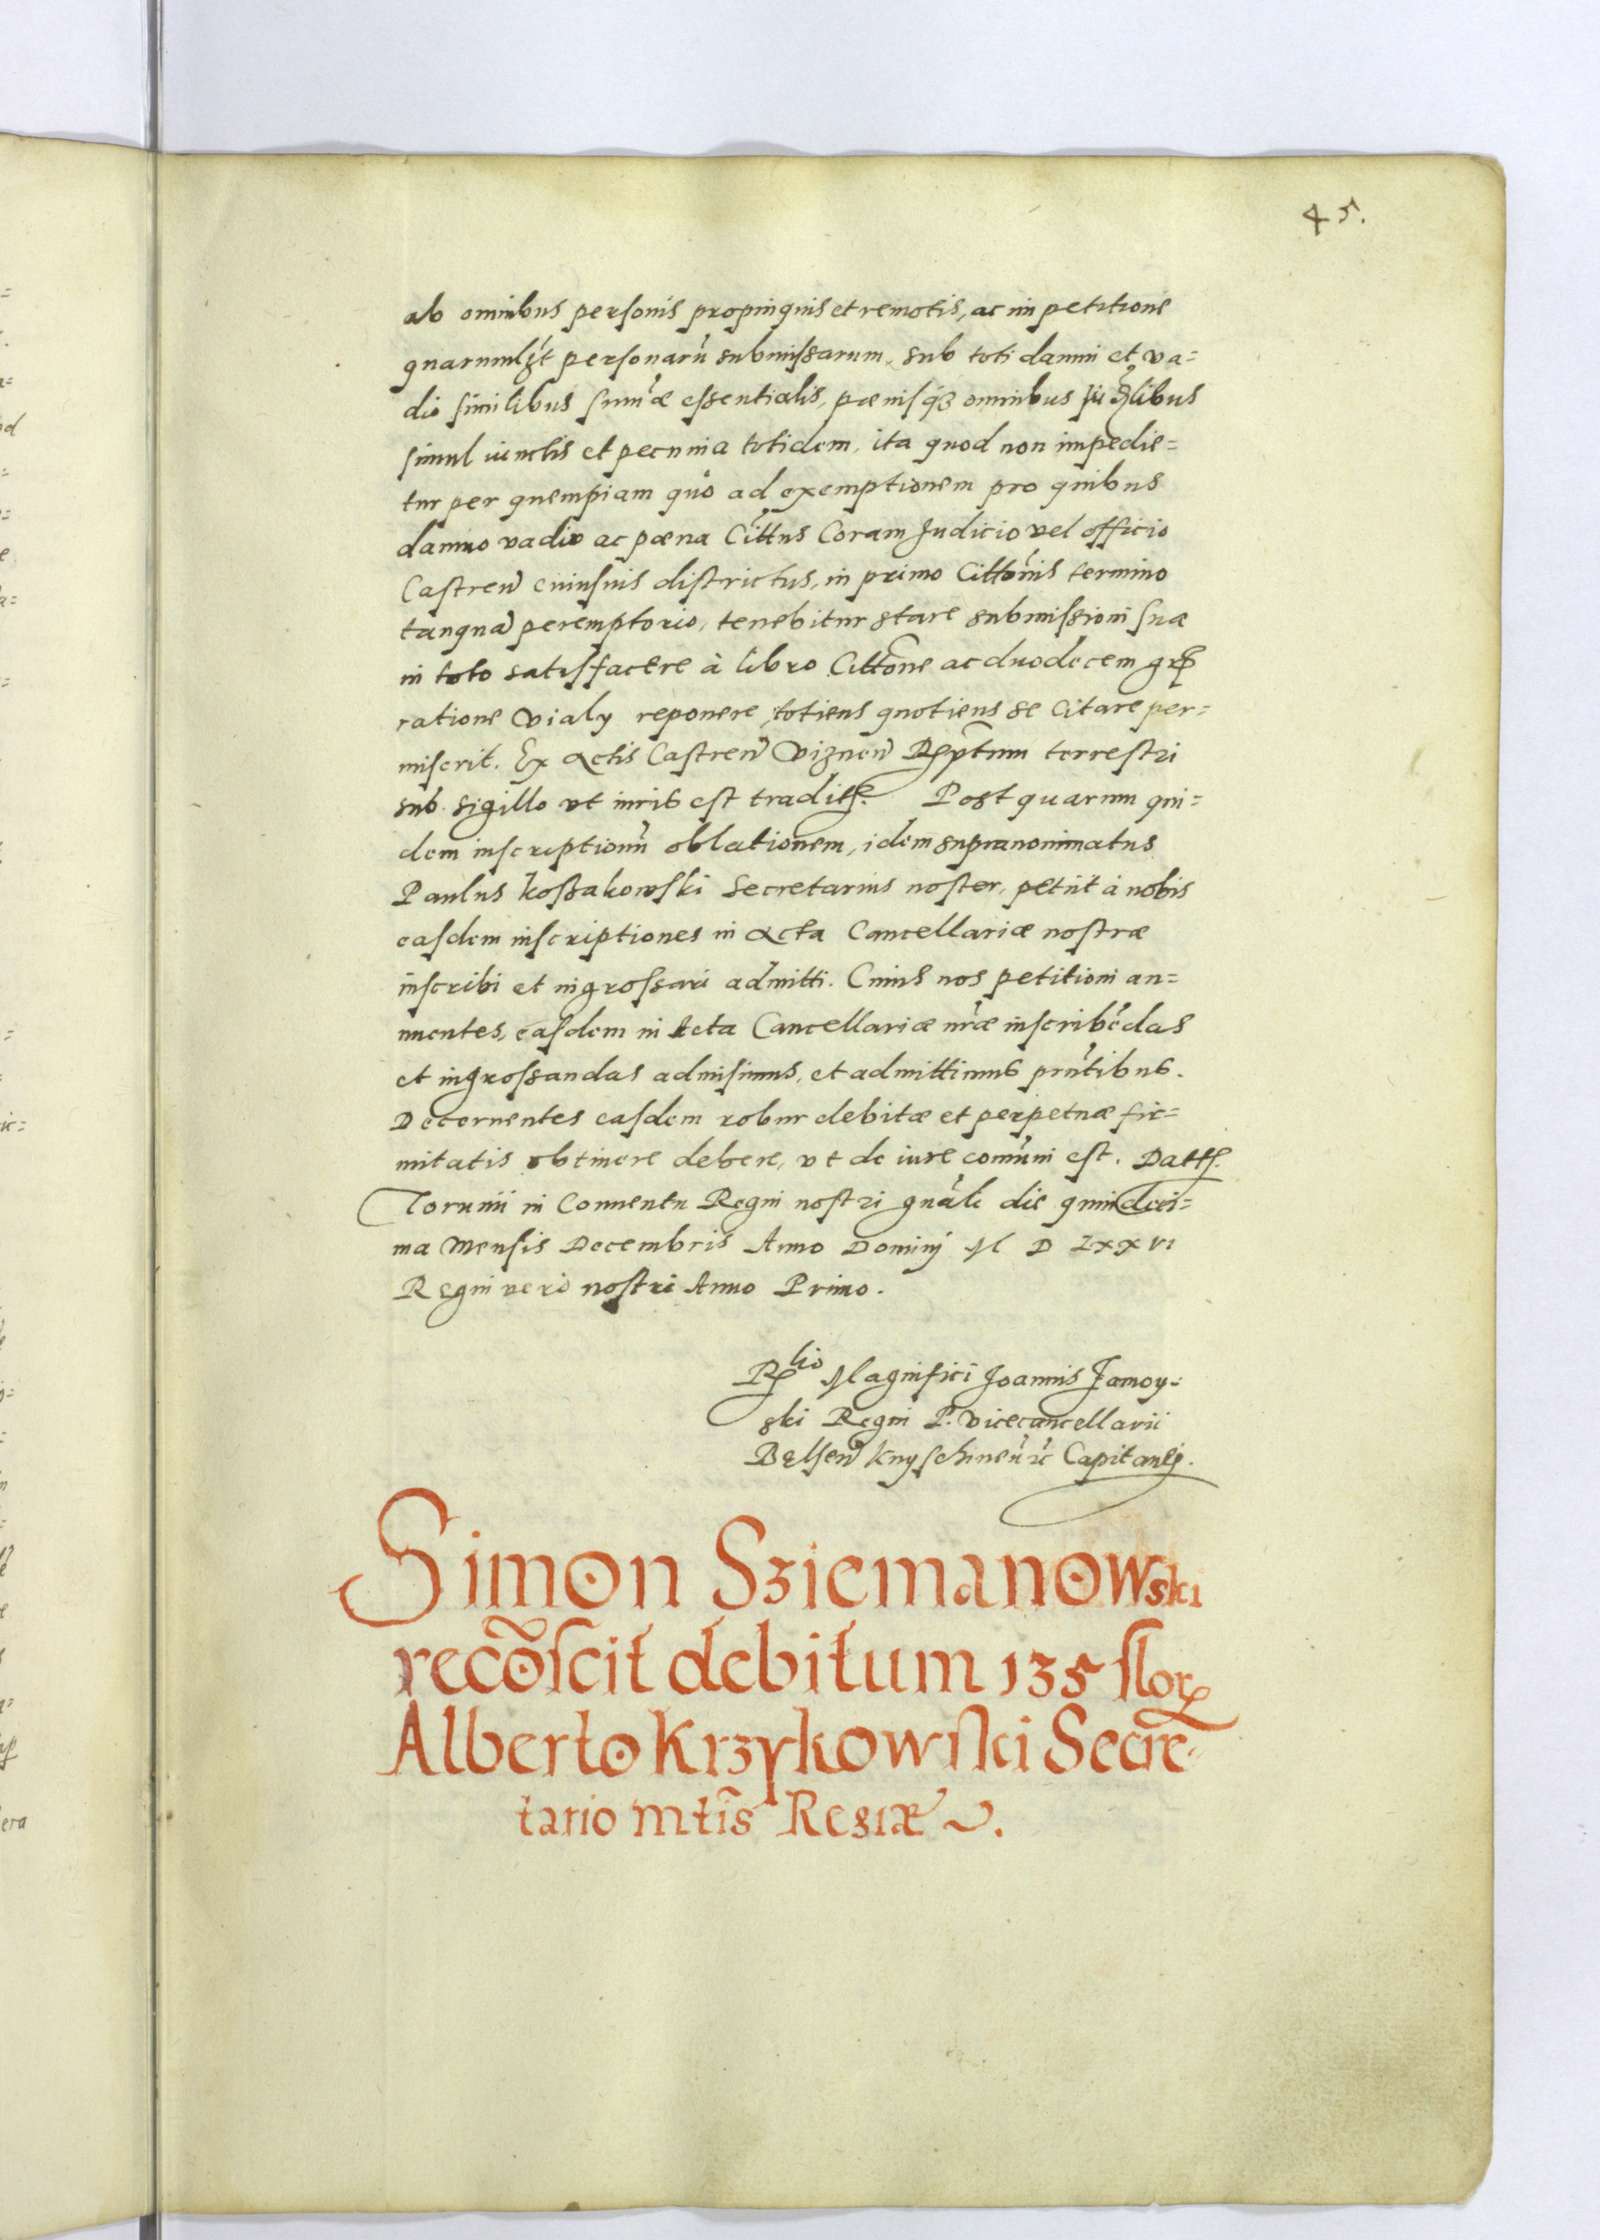 45.
ab omnibus personis propinquis et remotis, ac in petitione
quarumlȝt personarū submissarum, sub toti damni et va=
dio similibus sum̄æ essentialis, pœnisq̃ȝ omnibus
simul iunctis et pecunia totidem, ita quod non impedie=
tur per quempiam quō ad exemptionem pro quibus
damno vadio ac pœna Cittus Coram Judicio vel officio
Castreñ cuiusuis districtus, in primo Cittōnis termino
tanquã peremptorio, tenebitur stare submissioni suæ
in toto satisfacere à libro Cittōne ac duodecem
ratione Vialy reponere totiens quotiens se Citare per=
miserit. Ex Actis Castreñ Viznen̄ terrestri
sub sigillo vt iuris est tradit. Post quarum qui=
dem inscriptionū oblationem, idem supranominatus
Paulus Kossakowski Secretarius noster, petiit à nobis
easdem inscriptiones in Acta Cancellariæ nostræ
inscribi et ingrossari admitti. Cuius nos petitioni an=
nuentes, easdem in Acta Cancellariæ nr̄æ inscribēdas
et ingrossandas admisimus, et admittimus prn̄tibus.
Decernentes easdem robur debitæ et perpetuæ fir=
mitatis obtinere debere, vt de iure comūni est. Datt.
Torunii in Conuentu Regni nostri gnāli die quindeci=
ma Mensis Decembris Anno Dominj M D LXXVI
Regni vero nostri Anno Primo.
Rlio Magnifici Joannis Zamoy=
ski Regni P. Vicecancellarii
Belsen̄ Knyschinen̄ ꝛc Capitanej.
Simon Sziemanowski
recōscit debitum 135 flor
Alberto Krzykowski Secre=
tario Mtis̄ Regiæ.